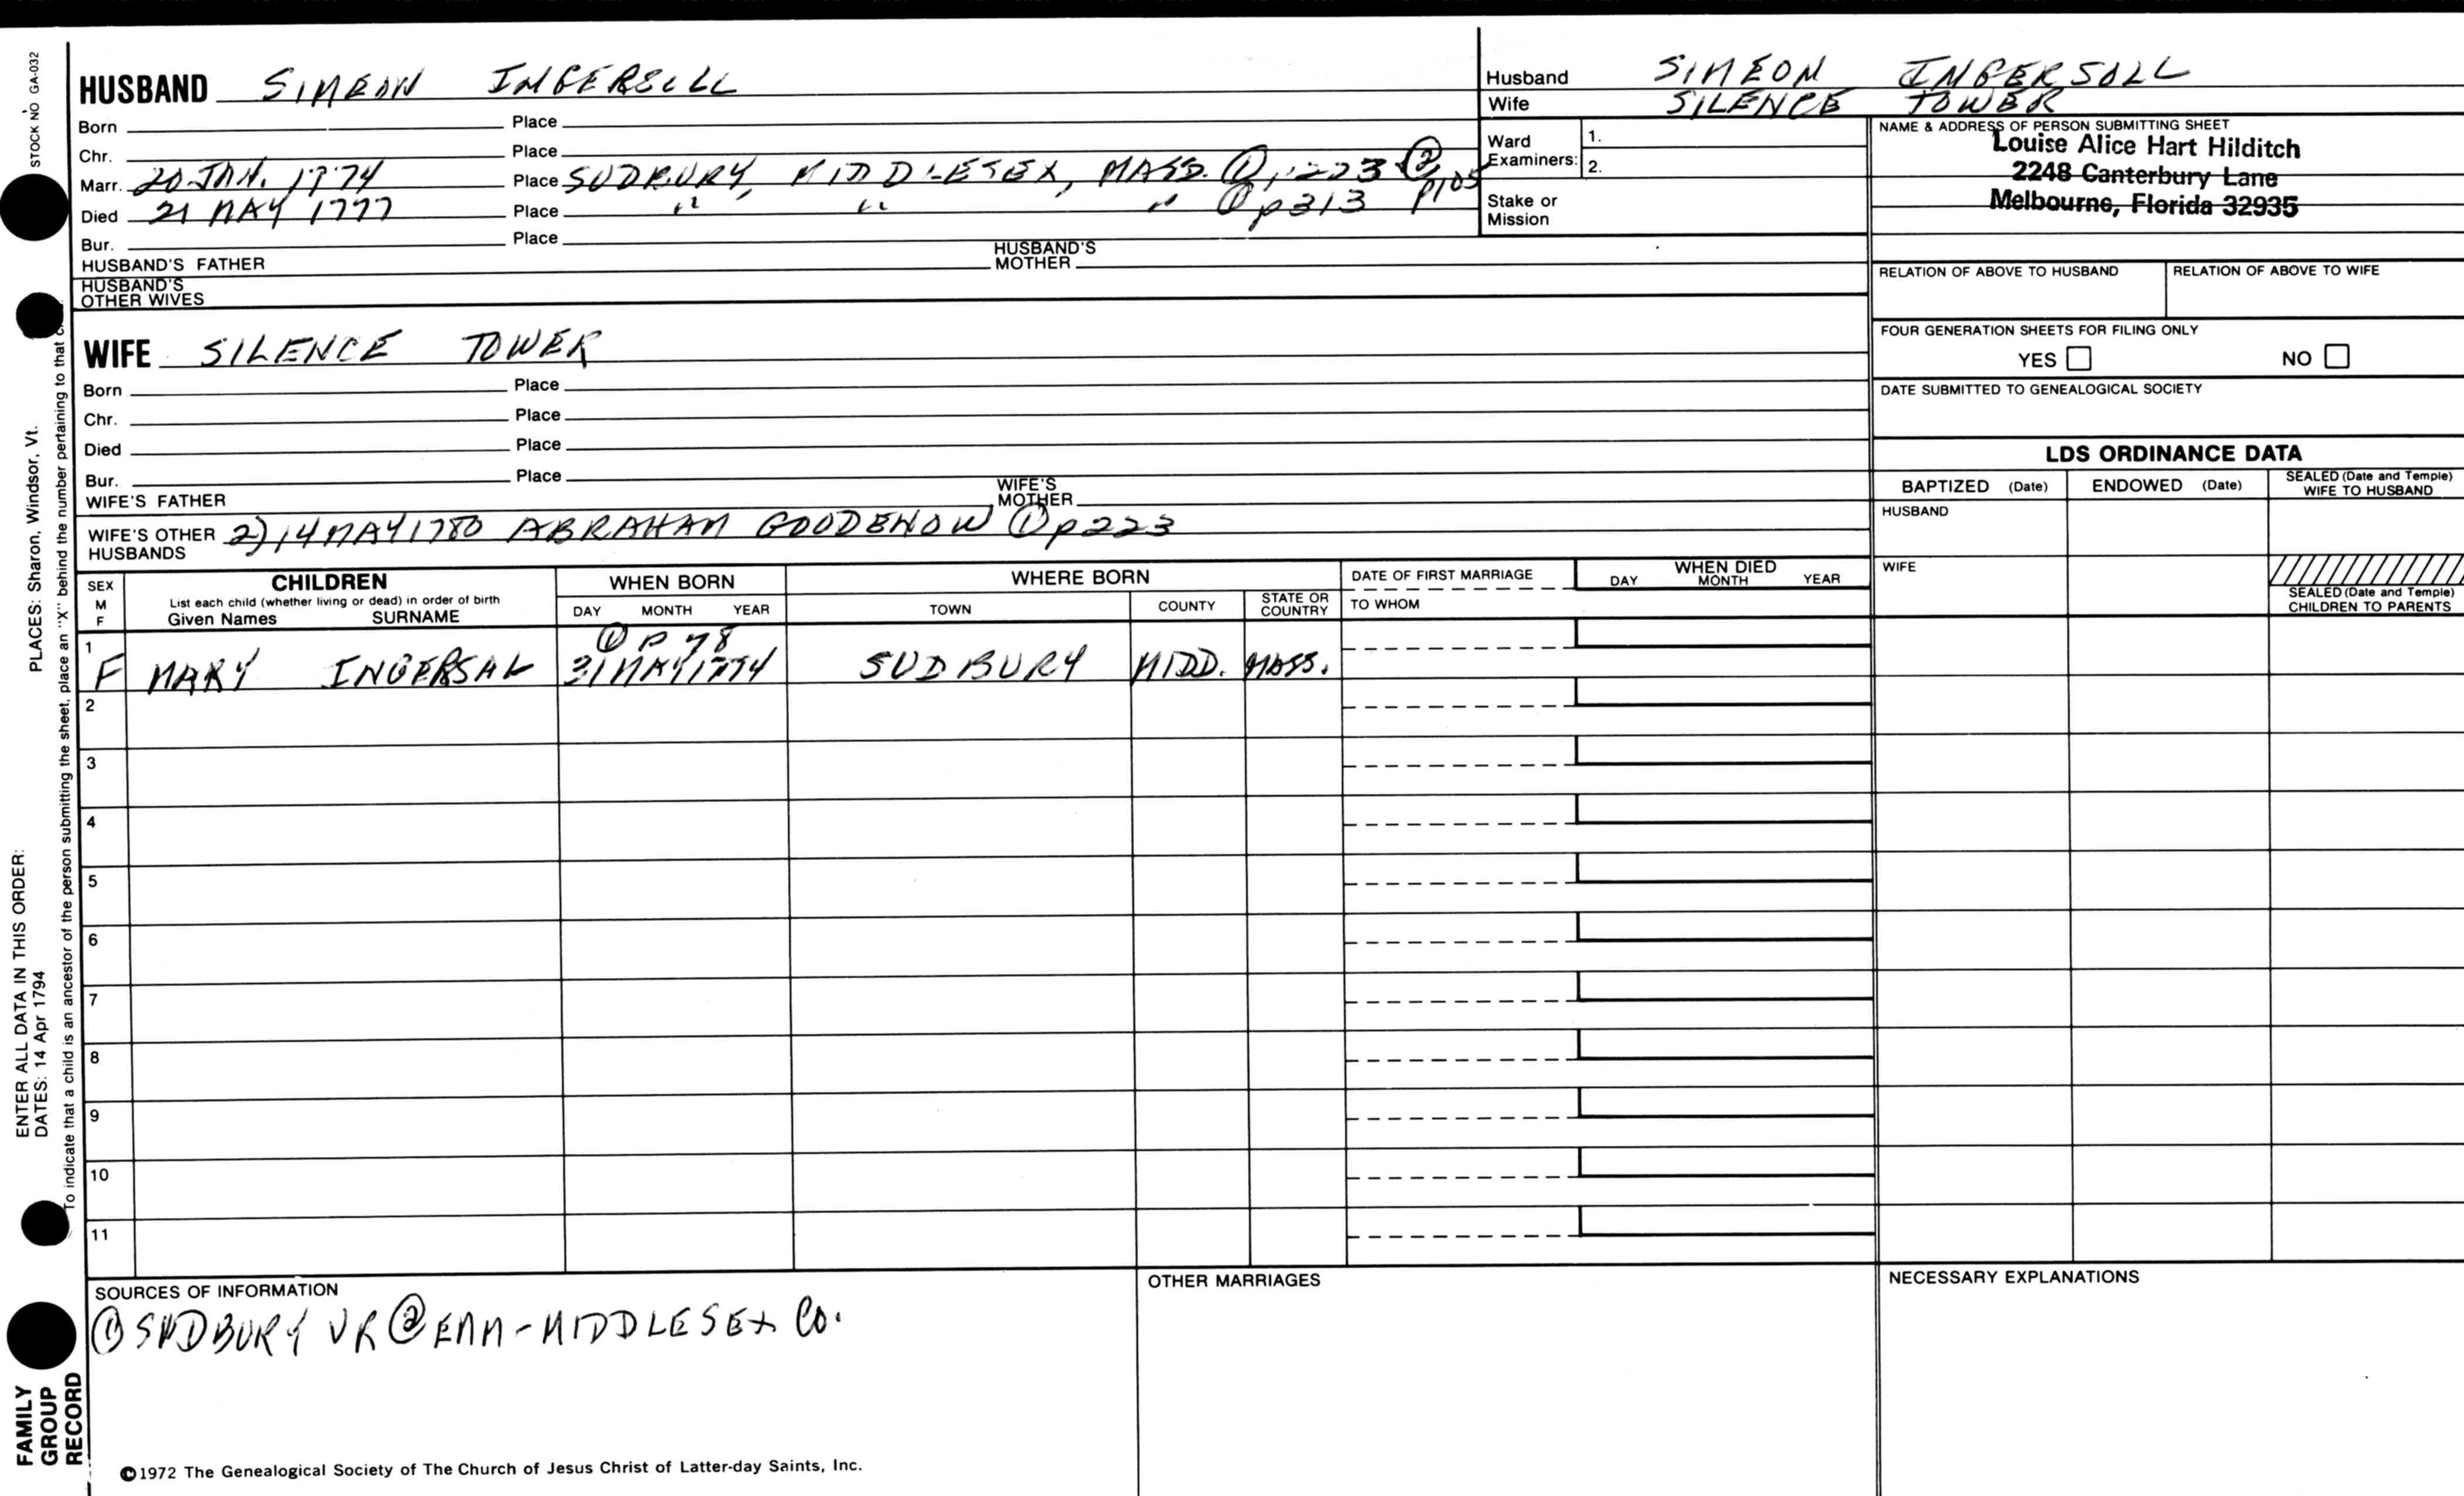 STOCK NO GA-032
HUSBAND SIMEON INGERSOLL
Born Place
Chr. Place
Marr. 20 JAN. 1774 Place SUDBURY, MIDDLESEX, MASS. ① p223 ② p105
Died 21 MAY 1777 Place " " " ① p313
Bur. Place
HUSBAND'S FATHER HUSBAND'S MOTHER
HUSBAND'S OTHER WIVES
WIFE SILENCE TOWER
Born Place
Chr. Place
Died Place
Bur. Place
WIFE'S FATHER WIFE'S MOTHER
WIFE'S OTHER HUSBANDS 2) 14 MAY 1780 ABRAHAM GOODENOW ① p223
Husband SIMEON INGERSOLL
Wife SILENCE TOWER
Ward Examiners: 1.
2.
Stake or Mission
NAME & ADDRESS OF PERSON SUBMITTING SHEET
Louise Alice Hart Hilditch
2248 Canterbury Lane
Melbourne, Florida 32935
RELATION OF ABOVE TO HUSBAND RELATION OF ABOVE TO WIFE
FOUR GENERATION SHEETS FOR FILING ONLY
YES NO
DATE SUBMITTED TO GENEALOGICAL SOCIETY
LDS ORDINANCE DATA
BAPTIZED (Date) ENDOWED (Date) SEALED (Date and Temple) WIFE TO HUSBAND
HUSBAND
WIFE
SEALED (Date and Temple) CHILDREN TO PARENTS
SEX M F
CHILDREN
List each child (whether living or dead) in order of birth
Given Names SURNAME
WHEN BORN
DAY MONTH YEAR
WHERE BORN
TOWN COUNTY STATE OR COUNTRY
DATE OF FIRST MARRIAGE
TO WHOM
WHEN DIED
DAY MONTH YEAR
① P 78
1 F MARY INGERSAL 31 MAY 1774 SUDBURY MIDD. MASS.
2
3
4
5
6
7
8
9
10
11
SOURCES OF INFORMATION
① SUDBURY VR ② EMM-MIDDLESEX CO.
OTHER MARRIAGES
NECESSARY EXPLANATIONS
©1972 The Genealogical Society of The Church of Jesus Christ of Latter-day Saints, Inc.
FAMILY
GROUP
RECORD
ENTER ALL DATA IN THIS ORDER:
DATES: 14 Apr 1794
PLACES: Sharon, Windsor, Vt.
To indicate that a child is an ancestor of the person submitting the sheet, place an "X" behind the number pertaining to that